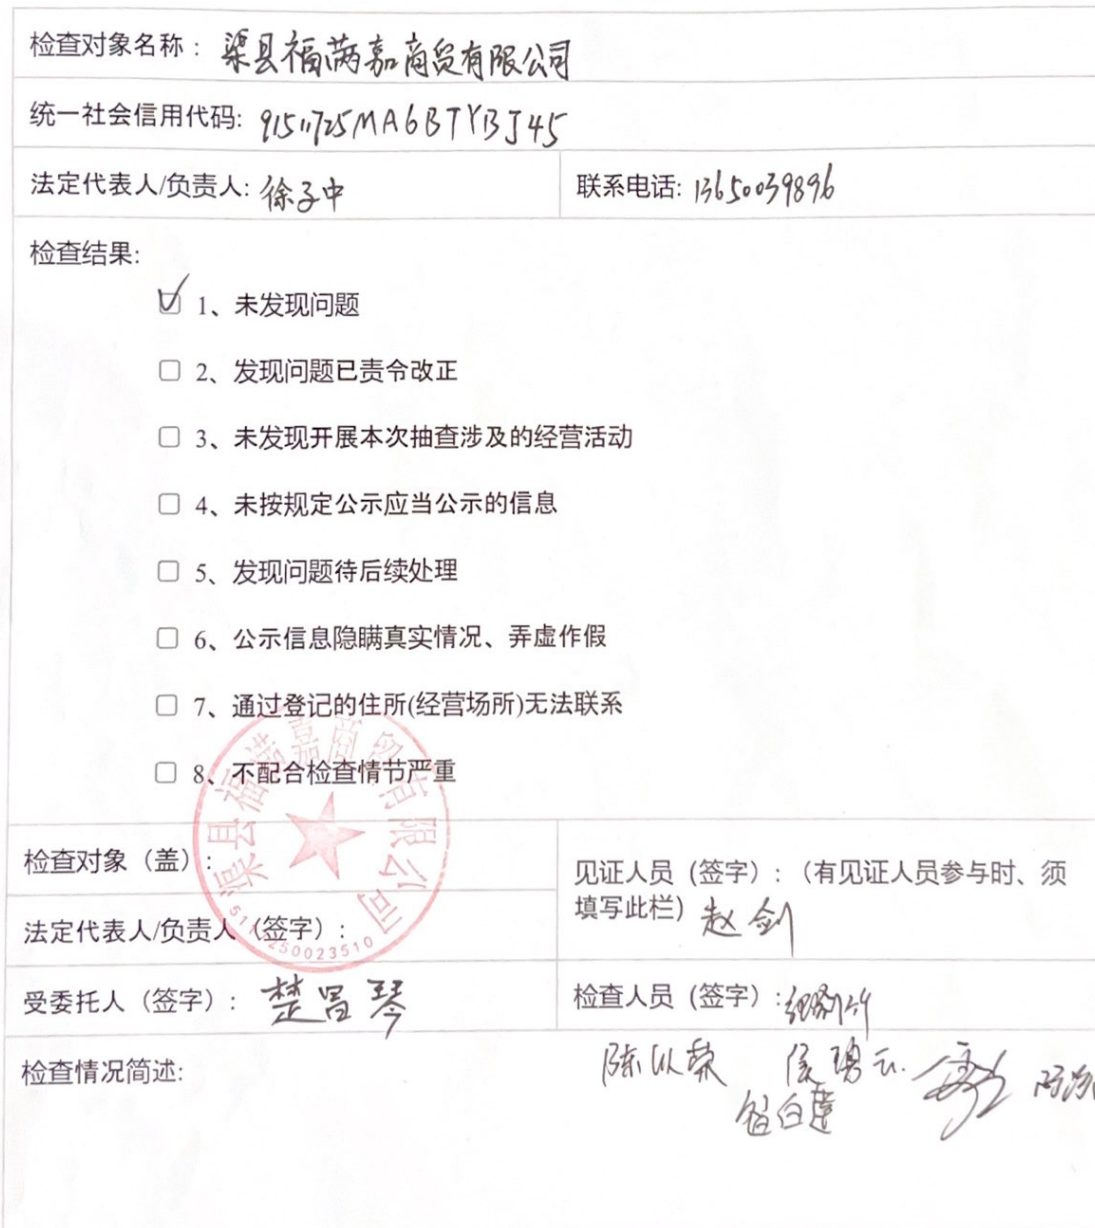 检查对象名称：渠县福满嘉商贸有限公司
统一社会信用代码: 91511725MA6BTYBJ45
法定代表人/负责人: 徐子中
联系电话: 13650039896
检查结果:
☑ 1、未发现问题
☐ 2、发现问题已责令改正
☐ 3、未发现开展本次抽查涉及的经营活动
☐ 4、未按规定公示应当公示的信息
☐ 5、发现问题待后续处理
☐ 6、公示信息隐瞒真实情况、弄虚作假
☐ 7、通过登记的住所(经营场所)无法联系
☐ 8、不配合检查情节严重
渠县福满嘉商贸有限公司
检查对象（盖）:
法定代表人/负责人（签字）:
见证人员（签字）:（有见证人员参与时、须
填写此栏）赵剑
受委托人（签字）: 楚昌琴
检查人员（签字）:
检查情况简述:
陈以荣 侯碧云